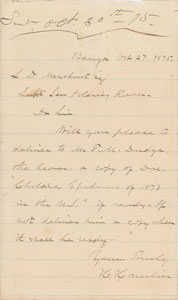 Oct. 30th 75.
Bangor Oct 27, 1875.
L. D. Merchant Esq
Supt Folding Room
Dr Sir
Will you please to
deliver to Mr. F. M. Dodge,
the bearer, a copy of Doc.
"Cholera Epidemic of 1873
in the U.S." if ready - If
not deliver him a copy when
it shall be ready -
Yours Truly
H. Hamlin